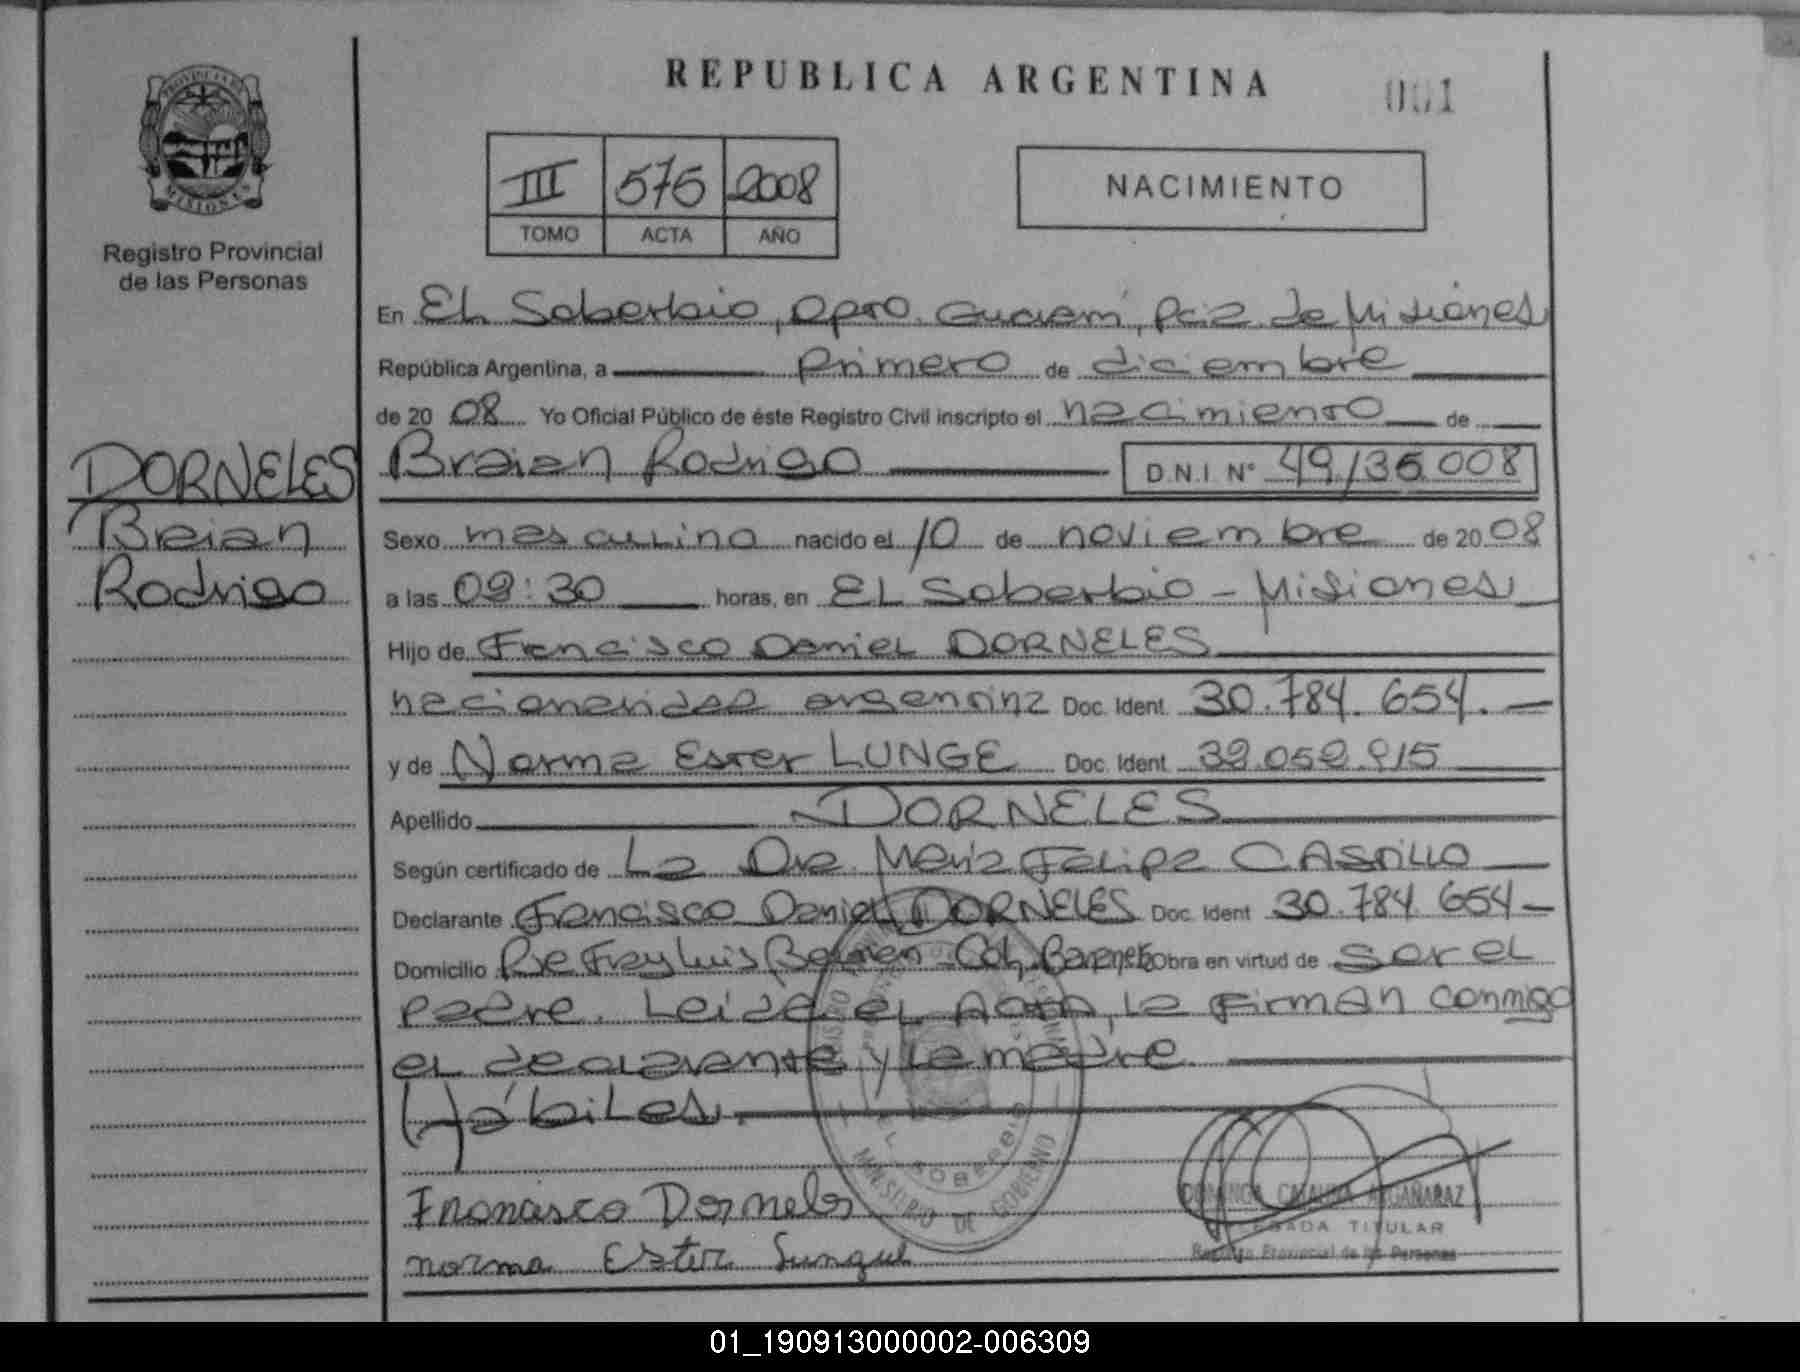 REPUBLICA ARGENTINA
001
PROVINCIA DE
MISIONES
Registro Provincial
de las Personas
III 575 2008
TOMO ACTA AÑO
NACIMIENTO
En El Soberbio, Dpto. Guaraní, Pcia de Misiones
República Argentina, a primero de diciembre
de 2008 Yo Oficial Público de éste Registro Civil inscripto el nacimiento de
DORNELES
Braian
Rodrigo
Braian Rodrigo D.N.I. N° 49.135.008
Sexo masculino nacido el 10 de noviembre de 2008
a las 09:30 horas, en El Soberbio - Misiones
Hijo de Francisco Daniel DORNELES
nacionalidad argentina Doc. Ident. 30.784.654.
y de Norma Ester LUNGE Doc. Ident.
Apellido DORNELES
Según certificado de La Dra. Maria Felipa CASTILLO
Declarante Francisco Daniel DORNELES Doc. Ident 30.784.654
Domicilio Pje Fray Luis Beltrán - Col. Obra en virtud de ser el
padre. Leida el Acta, la firman conmigo
el declarante y la madre.
Hábiles.
EL SOBERBIO
MINISTERIO DE GOBIERNO
Francisco Dorneles
norma Ester
DOMINGA CATALINA ARGAÑARAZ
DELEGADA TITULAR
Registro Provincial de las Personas
01_190913000002-006309